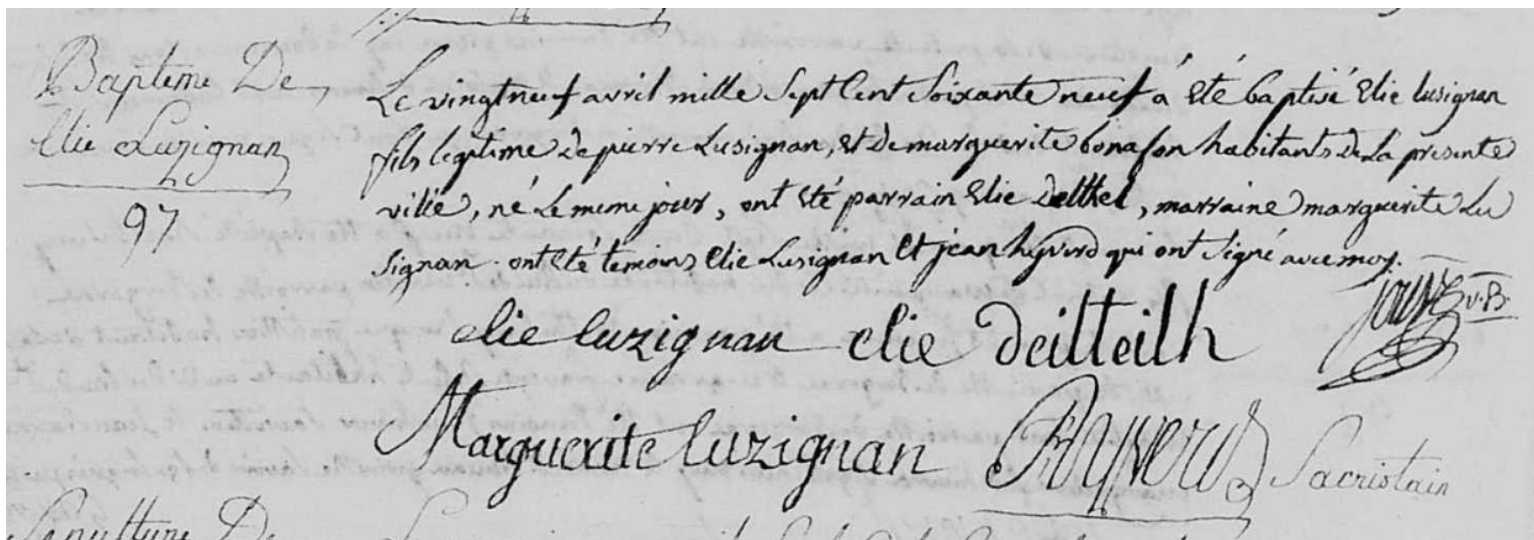 Baptême De
Elie Luzignan
97
Le vingtneuf avril mille Sept Cent Soixante neuf á été baptisé Elie lusignan
fils legitime de pierre Lusignan, et De marguerite bonafon habitants de La presente
ville, né le meme jour, ont été parrain Elie Delthel, marraine marguerite Lu
signan. ont été temoins Elie Lusignan et jean hyverd qui ont signé avec moy.
elie luzignan elie deilteilh
v. B.
Marguerite luzignan Sacristain
Sepulture De